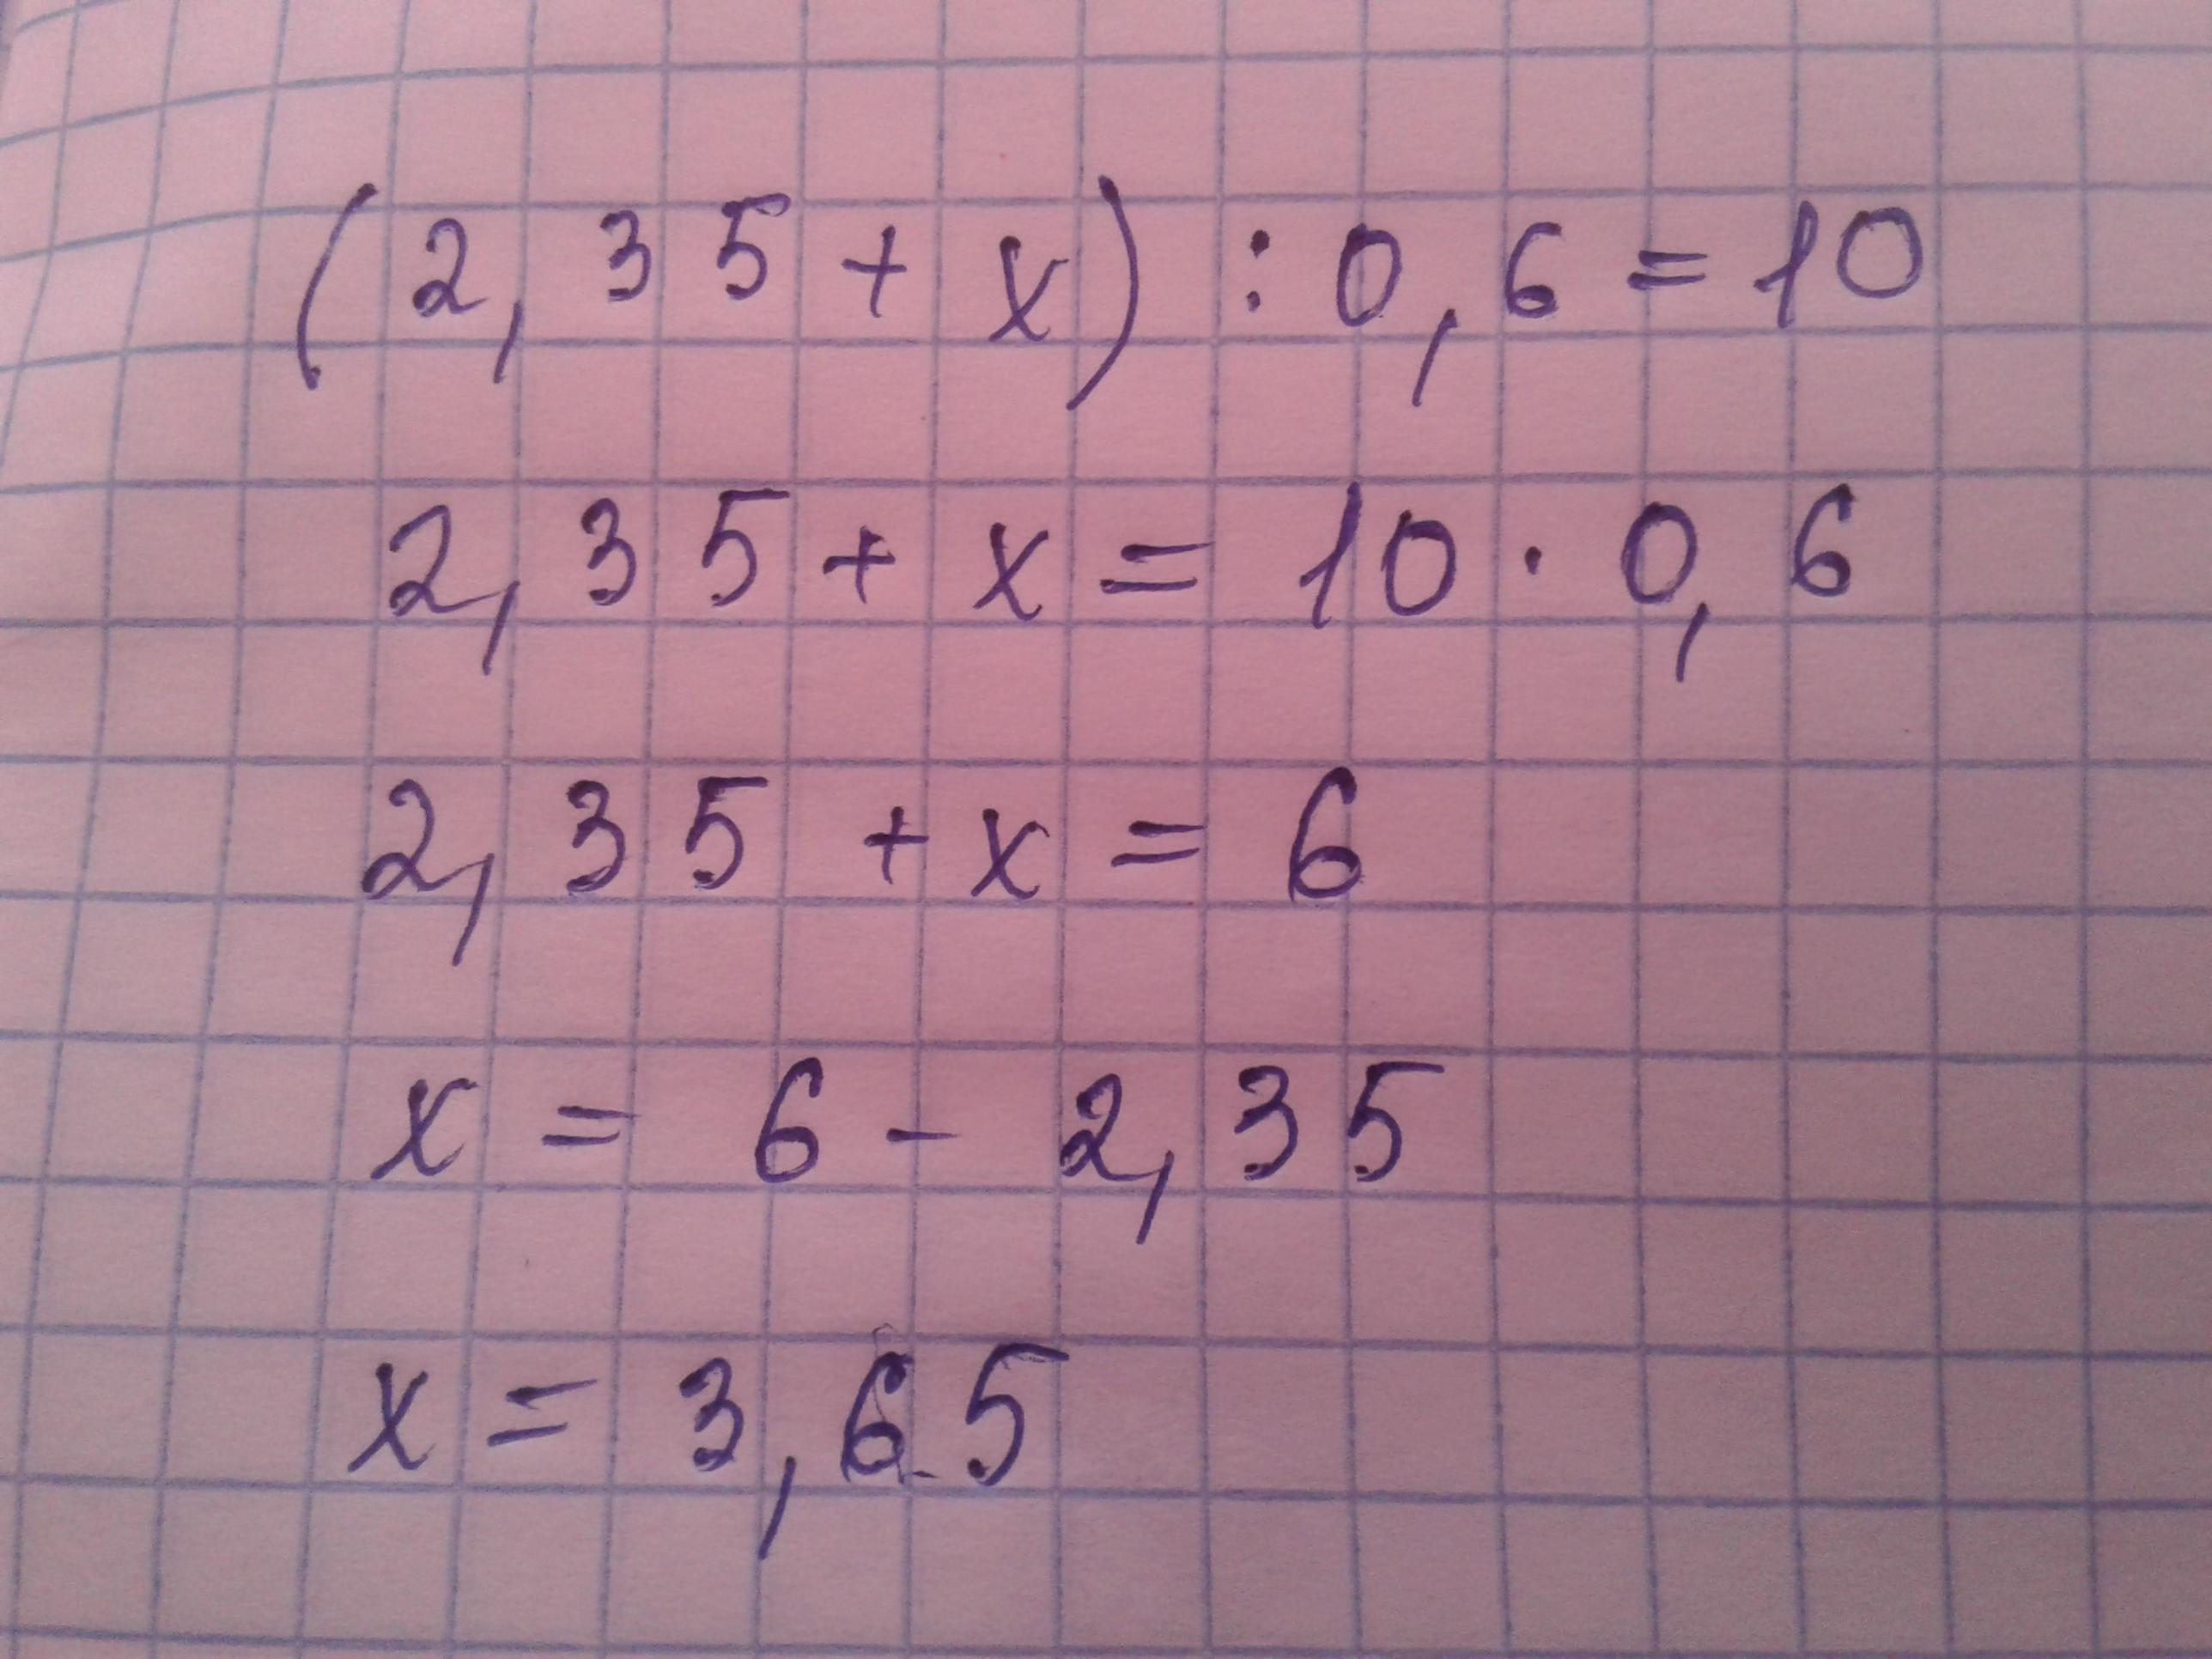 (2,35+x):0,6=10
2,35+x=10·0,6
2,35+x=6
x=6-2,35
x=3,65